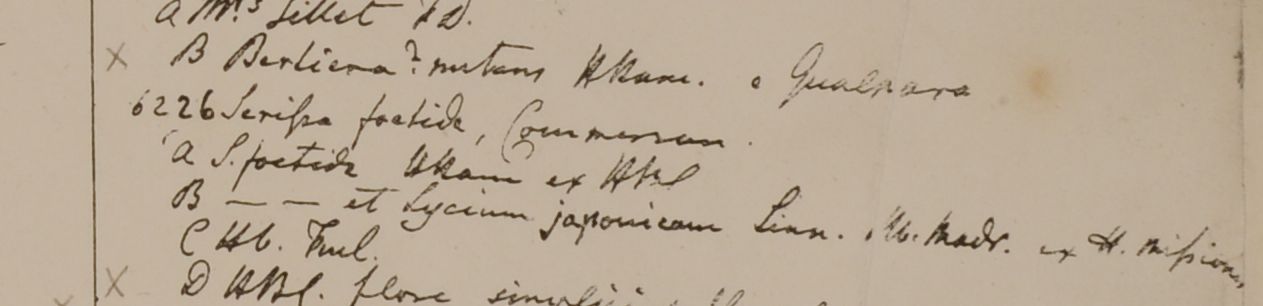 a Mrs Sillet
x B Bertiera? nutans HHam. e Gualpara
6226 Serissa foetida, Commerson.
a S. foetida HHam ex HBC
B — — et Lycium japonicum Linn. Hb. Madr. ex H. Mission.
C Hb. Finl.
x D HBC. flore simplici